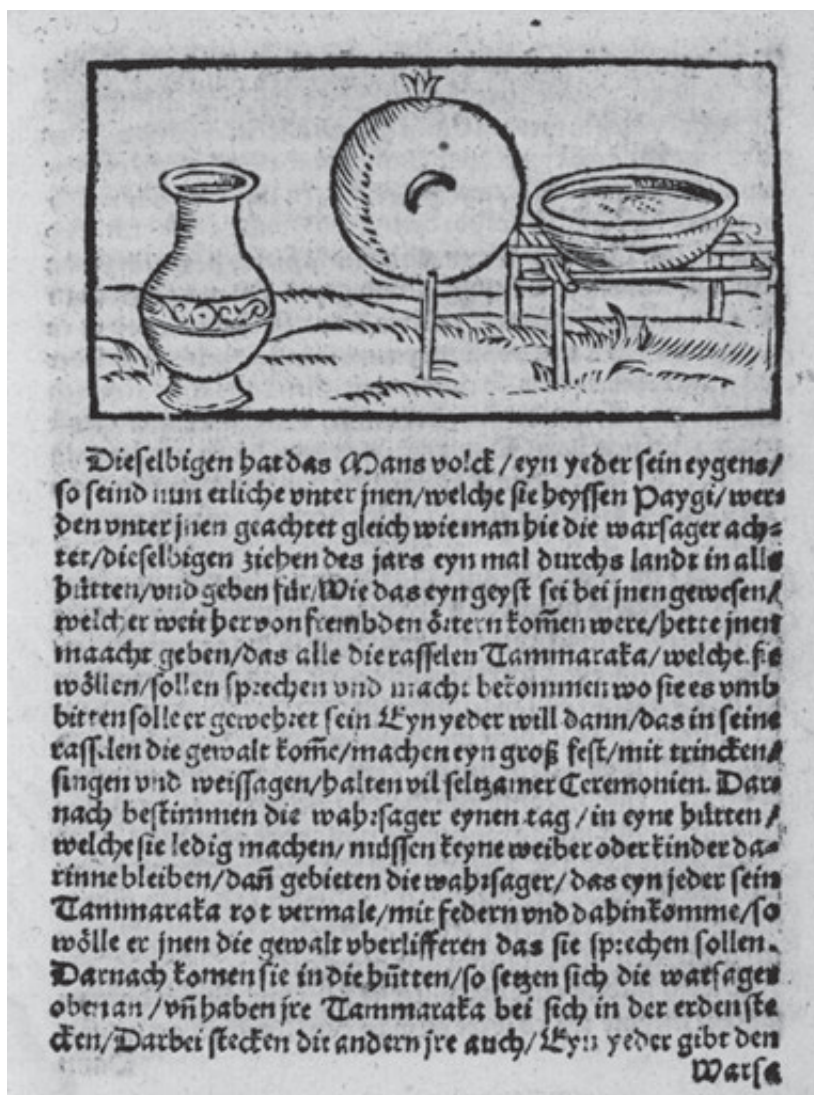 Dieselbigen hat das Mans volck / eyn yeder sein eygens /
so seind nun etliche vnter jnen / welche sie heyssen Paygi / wer⸗
den vnter jnen geachtet gleich wie man hie die warsager ach⸗
tet / dieselbigen ziehen des jars eyn mal durchs landt in alle
hütten / vnd geben für / Wie das eyn geyst sei bei jnen gewesen /
welcher weit her von frembden örtern kom̃en were / hette jnen
maacht geben / das alle die rasselen Tammaraka / welche sie
wöllen / sollen sprechen vnd macht bekommen wo sie es vmb
bitten solle er gewehret sein Eyn yeder will dann / das in seine
rasselen die gewalt kom̃e / machen eyn groß fest / mit trincken /
singen vnd weissagen / halten vil seltzamer Ceremonien. Dar⸗
nach bestimmen die wahrsager eynen tag / in eyne hütten /
welche sie ledig machen / müssen keyne weiber oder kinder da⸗
rinne bleiben / dañ gebieten die wahrsager / das eyn jeder sein
Tammaraka rot vermale / mit federn vnd dahin komme / so
wölle er jnen die gewalt vberlifferen das sie sprechen sollen.
Darnach komen sie in die hütten / so setzen sich die warsager
oben an / vñ haben jre Tammaraka bei sich in der erden ste
cken / Darbei stecken die andern jre auch / Eyn yeder gibt den
Warsa